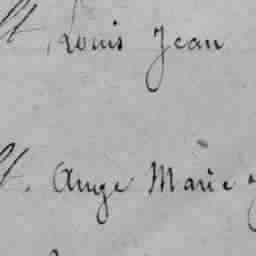 lt, Louis Jean
lt. Ange Marie